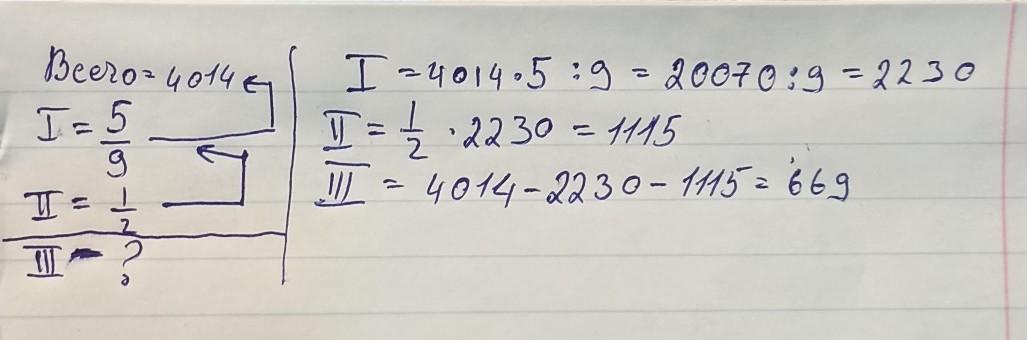 Всего = 4014
I = 5/9
II = 1/2
III - ?
I = 4014 · 5 : 9 = 20070 : 9 = 2230
II = 1/2 · 2230 = 1115
III = 4014 - 2230 - 1115 = 669